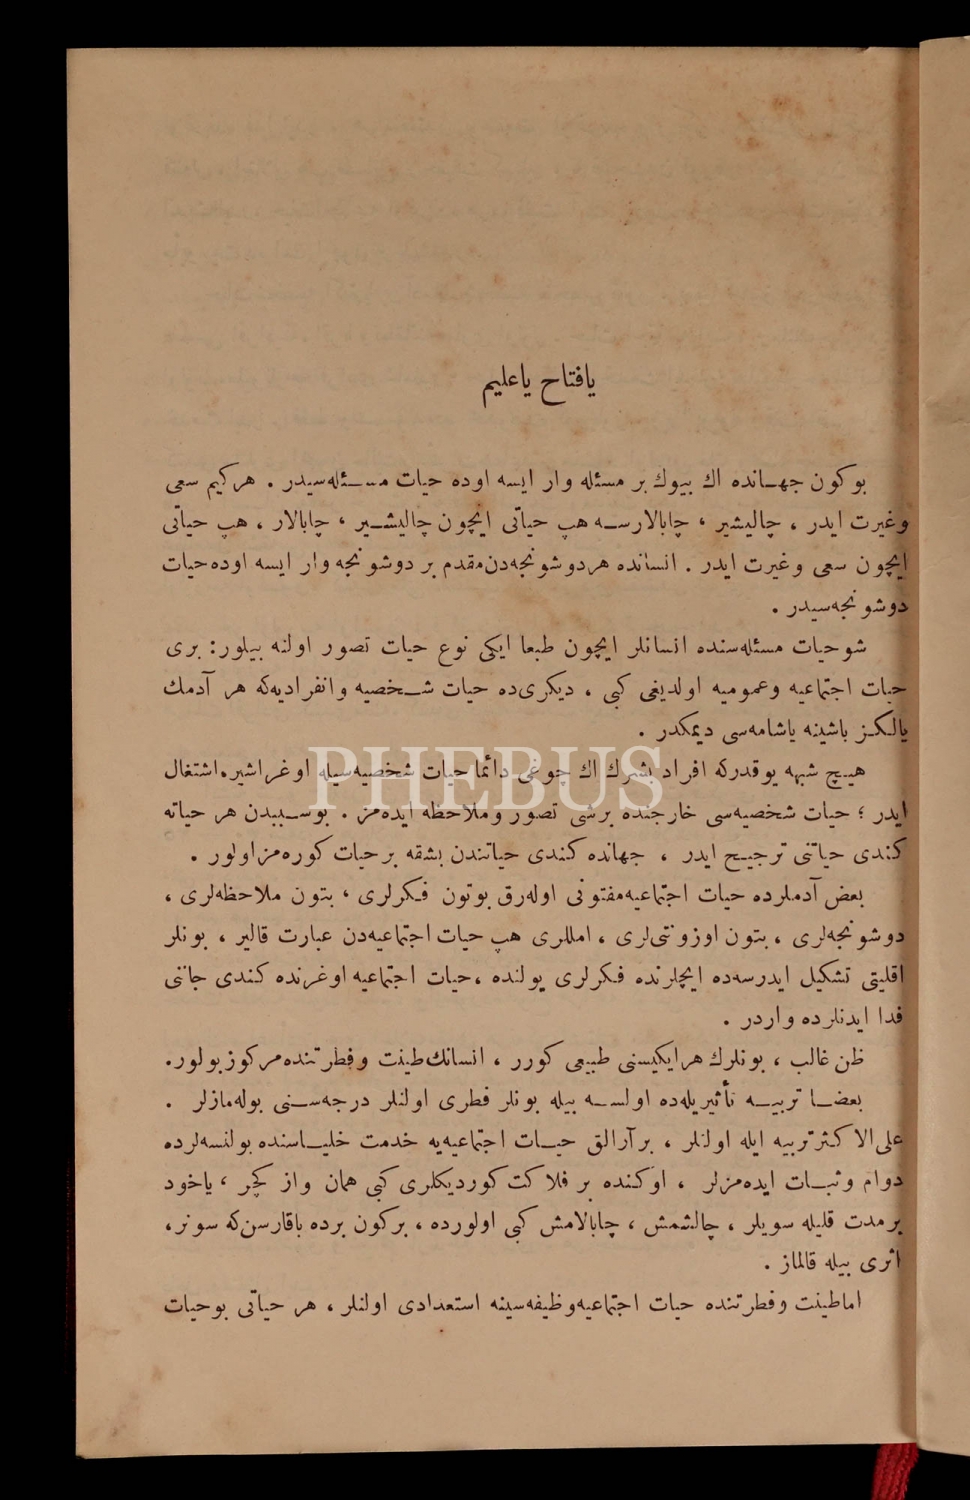 يافتاح ياعليم
بوكون جهانده اك بيوك بر مسئله وار ايسه اوده حيات مسئله‌سيدر . هركيم سعى
وغيرت ايدر ، چاليشير ، چابالارسه هپ حياتى ايچون چاليشير ، چابالار ، هپ حياتى
ايچون سعى وغيرت ايدر . انسانده هردوشونجه‌دن‌مقدم بر دوشونجه وار ايسه اوده‌حيات
دوشونجه‌سيدر .
شوحيات مسئله‌سنده انسانلر ايچون طبعا ايكى نوع حيات تصور اولنه بيلور: برى
حيات اجتماعيه وعموميه اولديغى كبى ، ديكرى‌ده حيات شخصيه وانفراديه‌كه هر آدمك
يالكز باشينه ياشامه‌سى ديمكدر .
هيچ شبهه يوقدركه افراد بشرك اك چوغى دائما حيات شخصيه‌سيله اوغراشير.اشتغال
ايدر ؛ حيات شخصيه‌سى خارجنده برشى تصور وملاحظه ايده‌مز . بوسببدن هر حياته
كندى حياتنى ترجيح ايدر ، جهانده كندى حياتندن بشقه برحيات كوره‌مزاولور .
بعض آدملرده حيات اجتماعيه‌مفتونى اوله‌رق بوتون فكرلرى ، بتون ملاحظه‌لرى ،
دوشونجه‌لرى ، بتون اوزونتى‌لرى ، امللرى هپ حيات اجتماعيه‌دن عبارت قالير ، بونلر
اقليتى تشكيل ايدرسه‌ده ايچلرنده فكرلرى يولنده ،حيات اجتماعيه اوغرنده كندى جاننى
فدا ايدنلرده واردر .
ظن غالب ، بونلرك هرايكيسنى طبيعى كورر ، انسانك‌طينت وفطرتنده‌مركوز بولور.
بعضا تربيه تأثيريله‌ده اولسه بيله بونلر فطرى اولنلر درجه‌سنى بوله‌مازلر .
على‌الاكثرتربيه ايله اولنلر ، برآرالق حيات اجتماعيه‌يه خدمت خلياسنده بولنسه‌لرده
دوام وثبات ايده‌مزلر ، اوكنده بر فلاكت كورديكلرى كبى همان واز كچر ، ياخود
برمدت قليله سويلر ، چالشمش ، چابالامش كبى اولورده ، بركون برده باقارسن‌كه سونر،
اثرى بيله قالماز .
اماطينت وفطرتنده حيات اجتماعيه‌وظيفه‌سينه استعدادى اولنلر ، هر حياتى بوحيات
PHEBUS